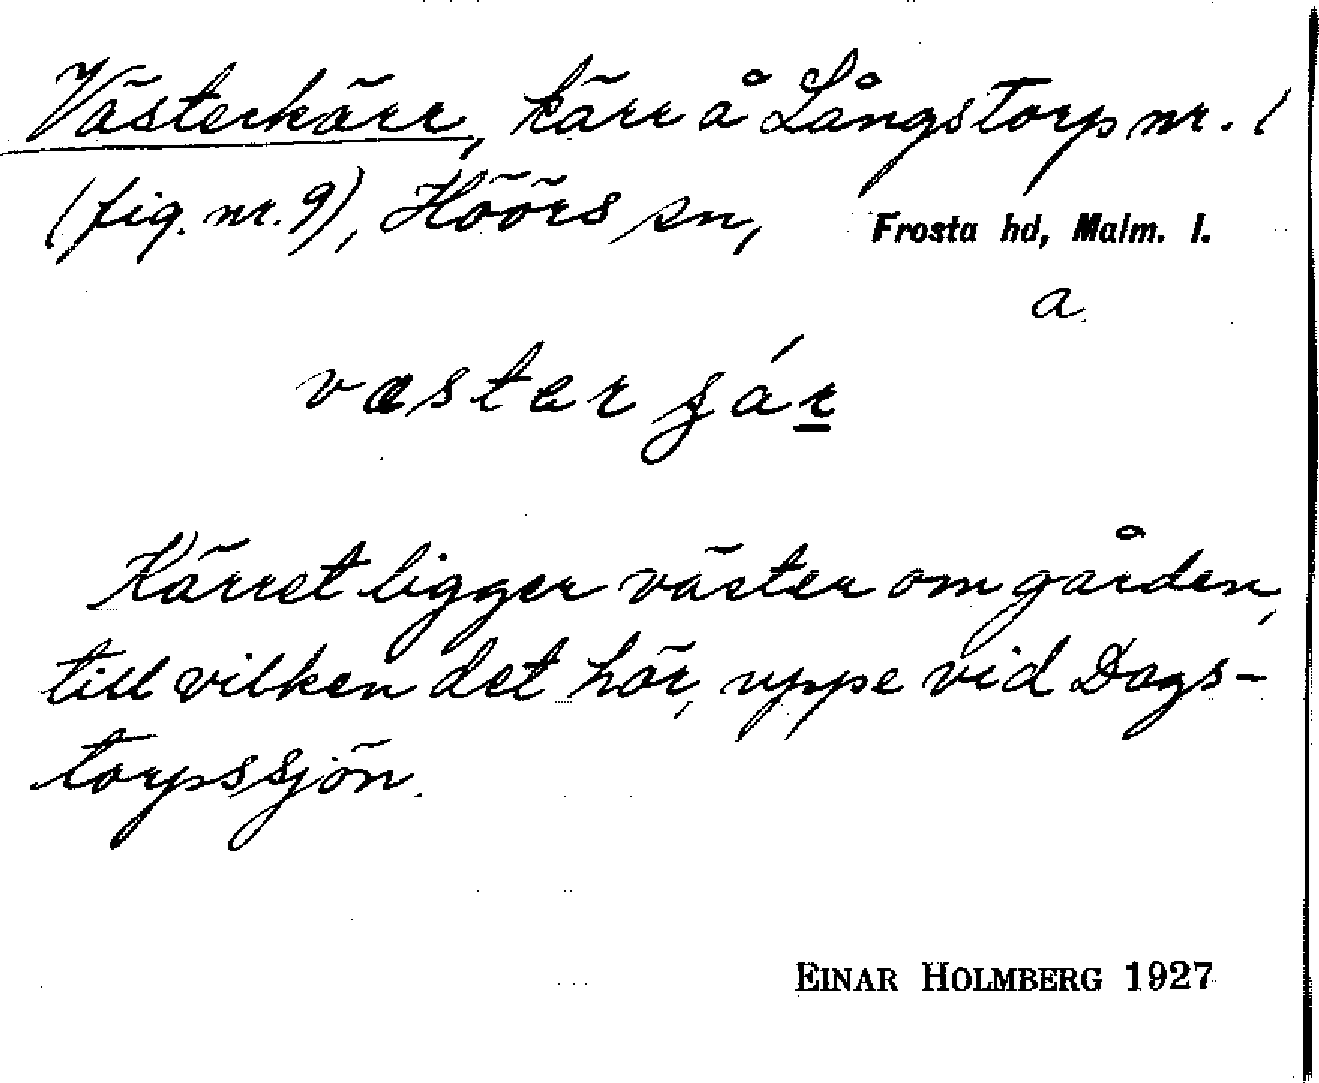 Västerkärr, kärr å Långstorp nr. 1
(fig. nr. 9), Höörs sn, Frosta hd, Malm. l.
a
væster ʃár
Kärret ligger väster om gården,
till vilken det hör, uppe vid Dags-
torpssjön.
EINAR HOLMBERG 1927